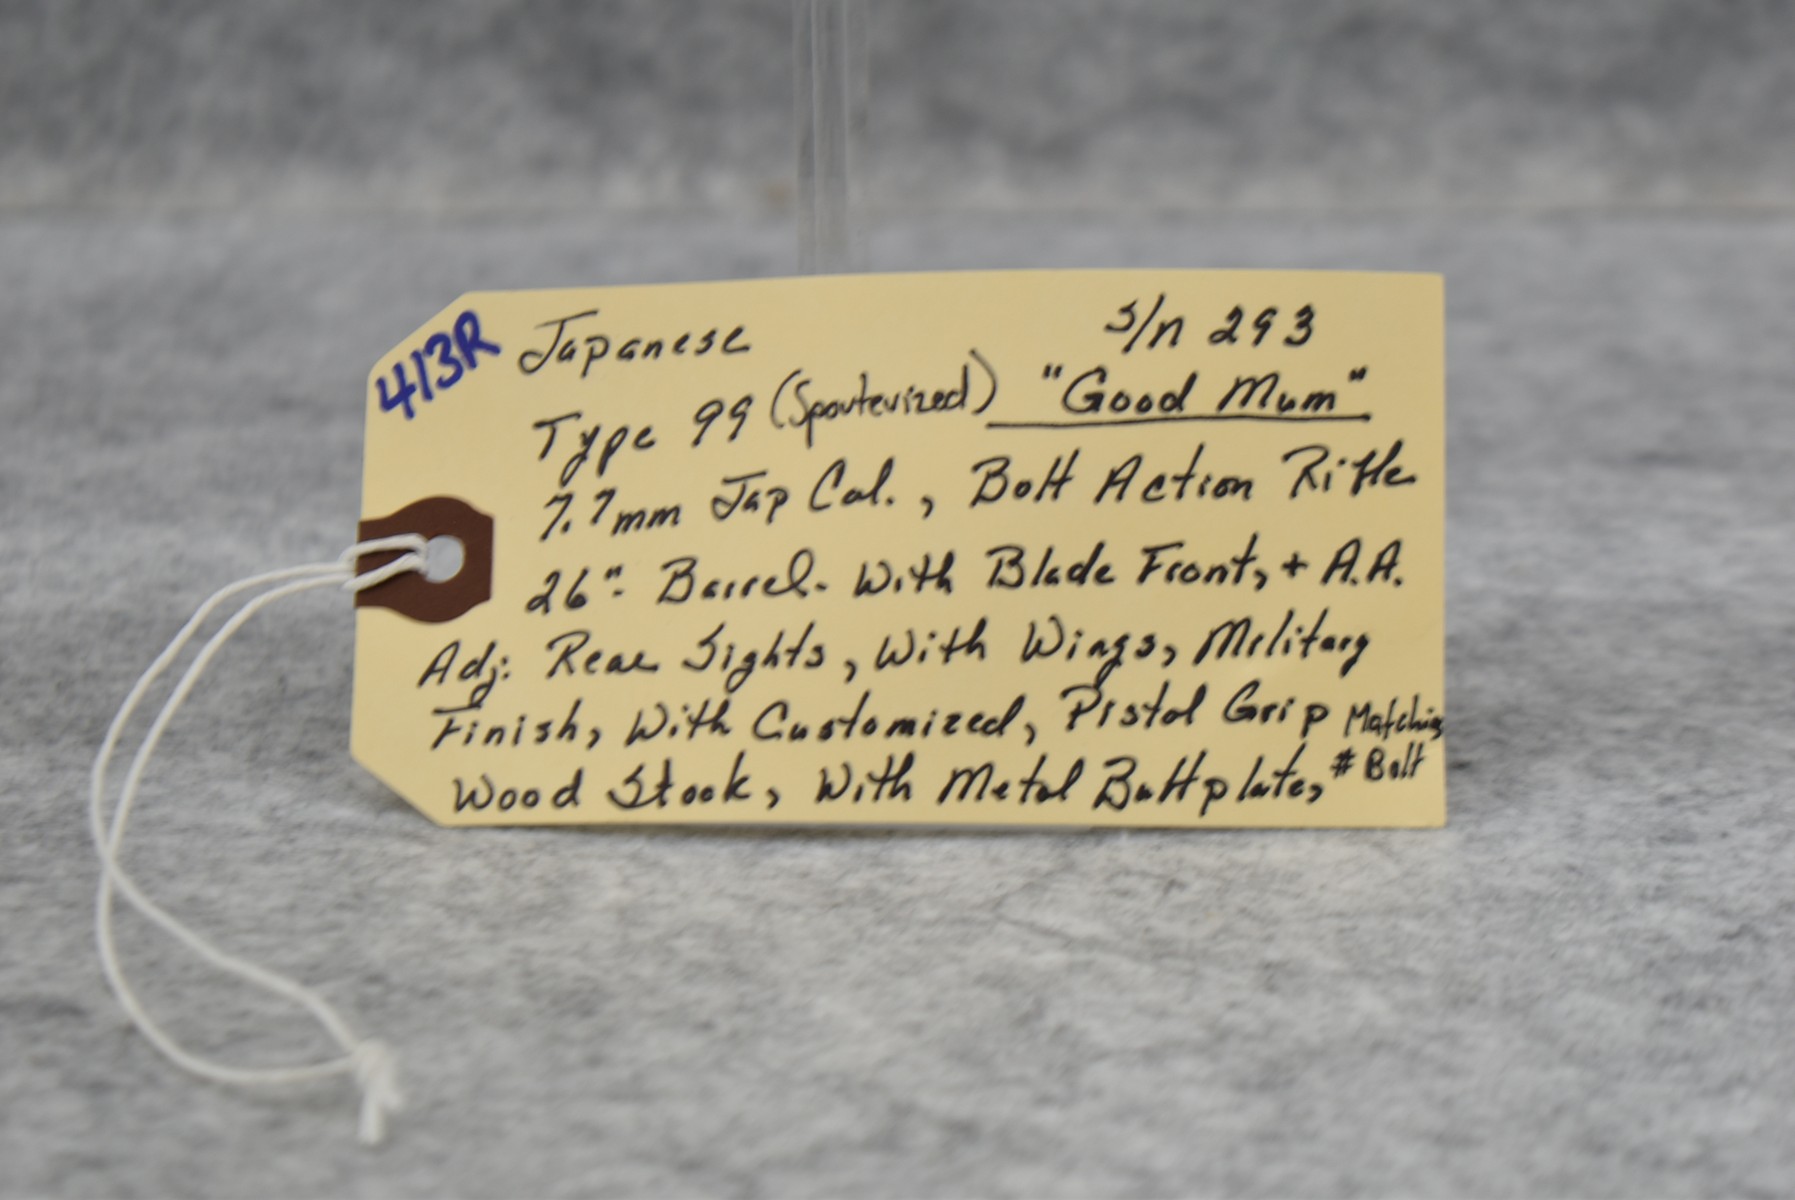 413R
Japanese s/n 293
Type 99 (Sporterized) "Good Mum"
7.7mm Jap Cal., Bolt Action Rifle
26". Barrel. With Blade Front, + A.A.
Adj. Rear Sights, With Wings, Military
Finish, With Customized, Pistol Grip Matching
Wood Stock, With Metal Buttplate, # Bolt